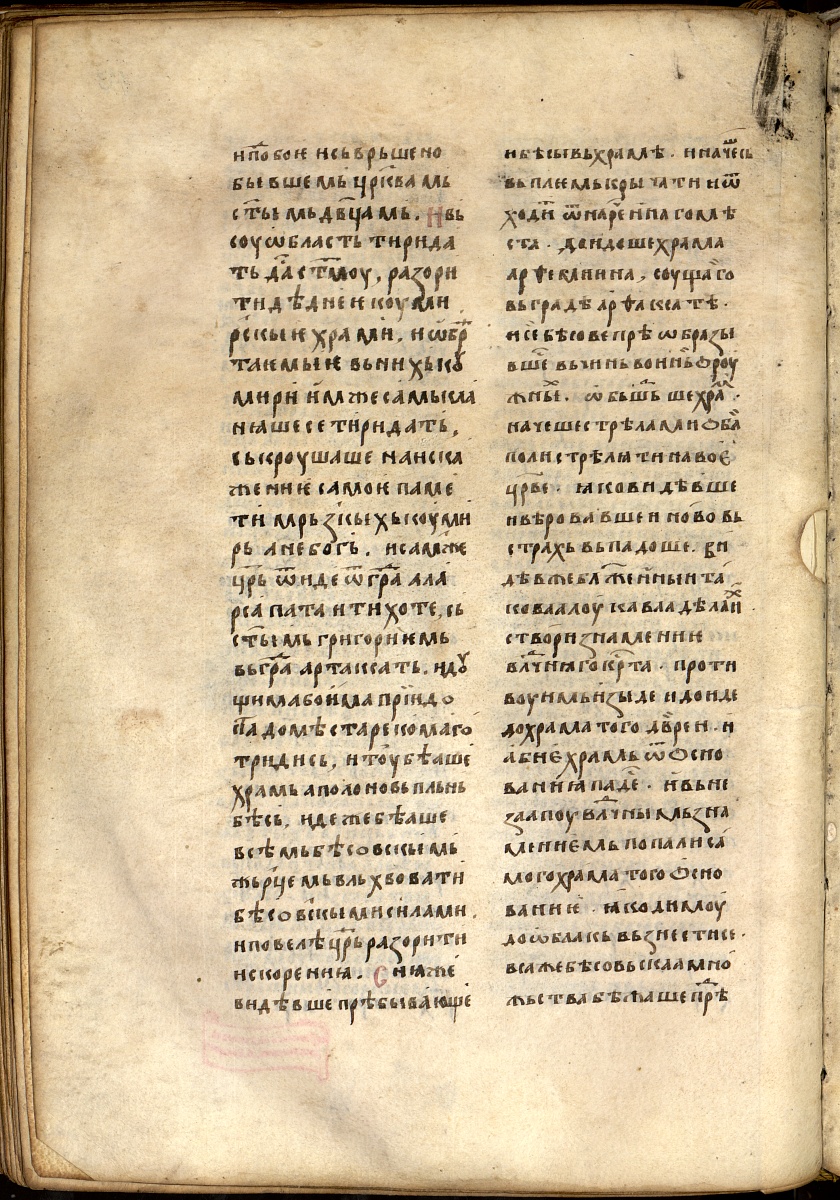 и по бо ѥ и сьврьшено
бывшемь црк҃вамь
ст҃ымь дв҃цамь. И вь
соу ѡбласть тирида
ть дасть ѥмоу, разори
ти дѣдниѥ коуми
рскыѥ храми. и ѡбрѣ
таѥмыѥ вь нихь коу
мири имже самь кла
нꙗше се тиридать.
ськроушаше на иска
жениѥ самоѥ паме
ти мрьзскыхь коуми
рь а не богь. и самже
цр҃ь ѿиде ѿ града ала
рсапата и ти хоте, сь
ст҃ымь григориѥмь
вь градь артаксать. идоу
щима бо има прїидо
ста до мѣста рекомаго
тридись, и тоу бѣаше
храмь аполоновь пльнь
бѣсь, иде же бѣаше
всѣмь бѣсовскымь
жьрцемь вльхвовати
бѣсовскыми силами.
и повелѣ цр҃ь разорити
и с корениꙗ. Сиꙗ же
видѣвше прѣбывающе
и бѣсы вь храмѣ. и начеше
вь племь крычати и ѿ
ходити ѿ нареннаго мѣ
ста. доидоше храма
арѳемиина, соущаго
вь градѣ арѳаксатѣ.
и се бѣсове прѣѡбразы
вше се вь чинь воиньѡроу
жнь. ѡбышьше храмь.
начеше стрѣлами ѡба
полы стрѣлꙗти на воѥ
цр҃ве. ꙗко видѣвше
и вѣровавше и ново вь
страхь вьпадоше. ви
дѣв же блаженныи та
ковааа лоукава дѣлании
створи знамениѥ
влⷣчнꙗго крⷭта. проти
воу имь изыде и доиде
до храма того двереи. и
абиѥ храмь ѿ осно
ваниꙗ паде. и вьне
заапоу влⷣчнымь зна
мениѥмь попали са
мого храма того осно
ваниѥ. ꙗко димоу
до ѡблакь вьзнести се.
вса же бѣсовьскаа мно
жьства бѣжаше прѣ